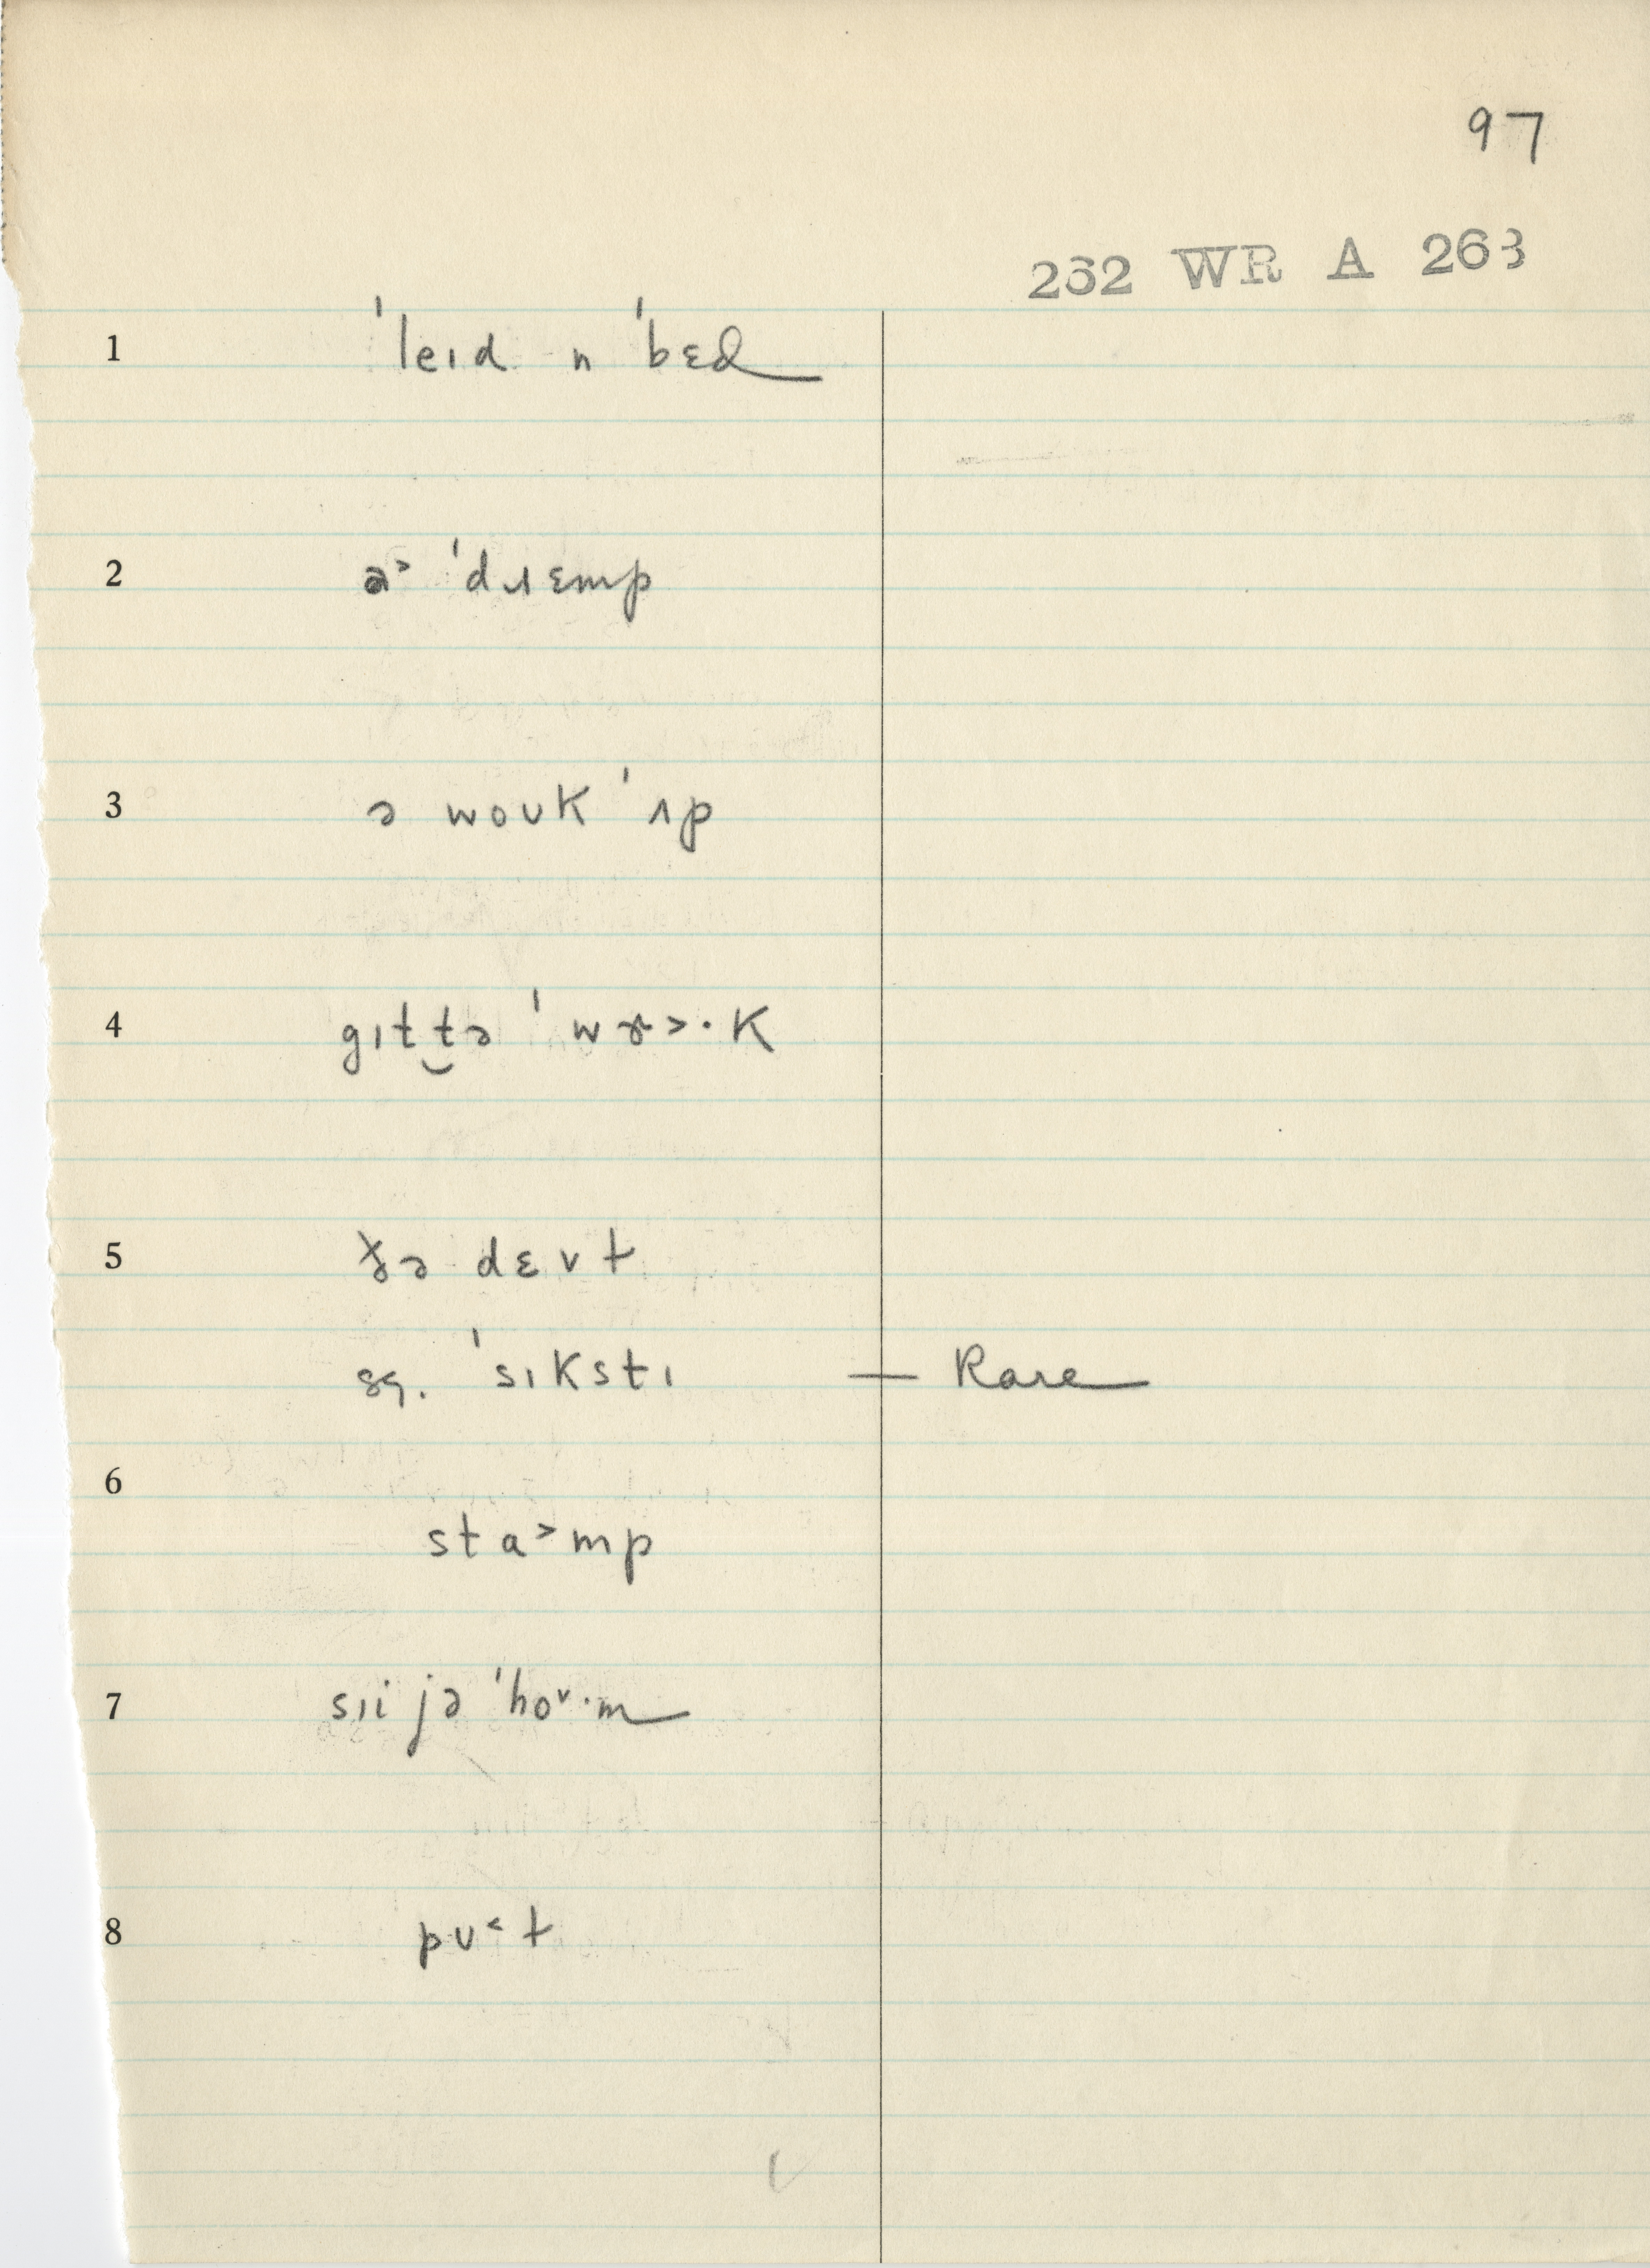 97
262 WR A 263
1 ˈleɪd n ˈbɛd
2 a˃ ˈdɹɛmp
3 ə woʊk ˈʌp
4 gɪt t̮ə ˈwɚ˃·k
5 ðə dɛvt
sg. ˈsɪkstɪ — Rare
6
sta˃mp
7 sɪi jə ˈho˅·m
8 pʊ˂t